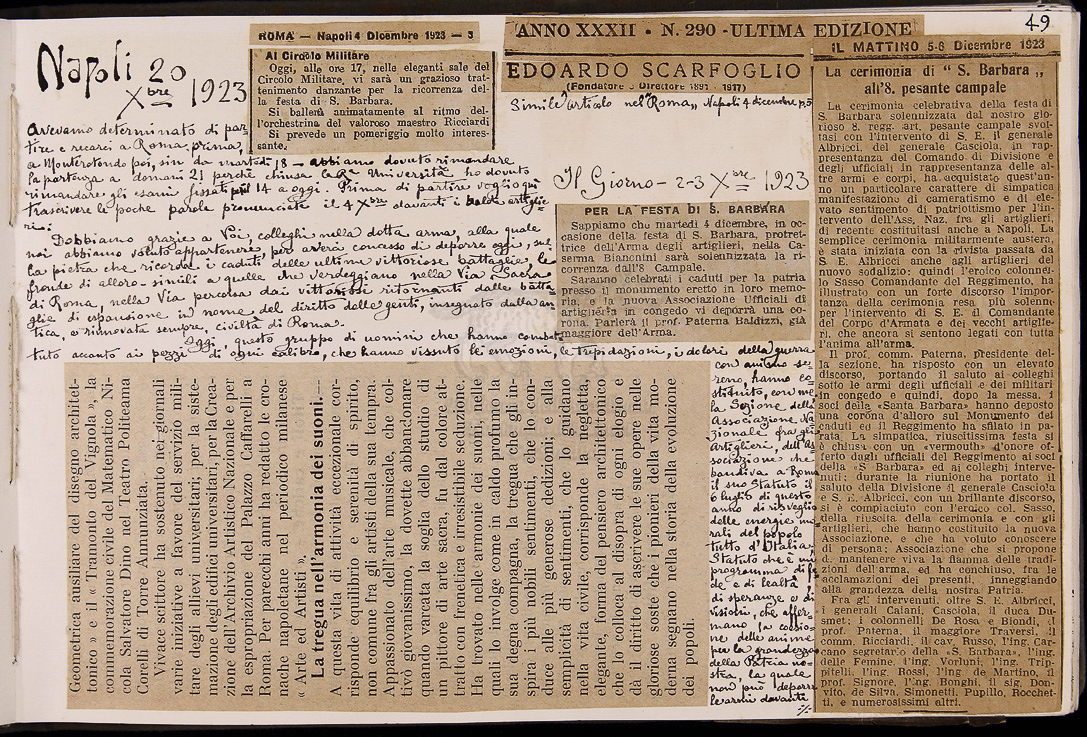 49
Napoli 20
Xbre 1923
Avevamo determinato di par-
tire e recarci a Roma prima,
a Monterotondo poi, sin da martedì 18 – abbiamo dovuto rimandare
la partenza a domani 21 perchè chiusa la Ra Università ho dovuto
rimandare gli esami fissati pel 14 a oggi. Prima di partire voglio qui
trascrivere le poche parole pronunciate il 4 Xbre davanti i baldi artiglie-
ri:
Dobbiamo grazie a Voi, colleghi nella dotta arma, alla quale
noi abbiamo voluto appartenere, per averci concesso di deporre oggi, sul-
la pietra che ricorda i caduti delle ultime vittoriose battaglie, le
fronde di alloro – simili a quelle che verdeggiano nella Via Sacra
di Roma, nella Via percorsa dai vittoriosi ritornanti dalle batta-
glie di espansione in nome del diritto delle genti, insegnato dalla an-
tica, e rinnovata sempre, civiltà di Roma.
Oggi, questo gruppo di uomini che hanno combat-
tuto accanto ai pezzi di ogni calibro, che hanno vissuto le emozioni, le trepidazioni, i dolori della guerra
con animo se-
reno, hanno co-
stituito, con me,
la Sezione della
Associazione Na-
zionale fra gli
Artiglieri, dell'As-
sociazione che
bandiva a Roma
il suo Statuto il
6 luglio di questo
anno di risveglio
delle energie mo-
rali del popolo
tutto d'Italia,
Statuto che è un
programma di fe-
de e di lealtà
di speranze e di
visioni, che affer-
mano la coesio-
ne delle anime
per la grandezza
della Patria no-
stra, la quale
non può deporre
le armi davanti
ROMA — Napoli 4 Dicembre 1923 — 3
Al Circolo Militare
Oggi, alle ore 17, nelle eleganti sale del
Circolo Militare, vi sarà un grazioso trat-
tenimento danzante per la ricorrenza del-
la festa di S. Barbara.
Si ballerà animatamente al ritmo del-
l'orchestrina del valoroso maestro Ricciardi
Si prevede un pomeriggio molto interes-
sante.
ANNO XXXII - N. 290 - ULTIMA EDIZIONE
EDOARDO SCARFOGLIO
(Fondatore e Direttore 1891 - 1917)
Simile articolo nel "Roma" Napoli 4 dicembre p.5
Il Giorno – 2-3 Xbre 1923
PER LA FESTA DI S. BARBARA
Sappiamo che martedì 4 dicembre, in oc-
casione della festa di S. Barbara, protet-
trice dell'Arma degli artiglieri, nella Ca-
serma Bianchini sarà solennizzata la ri-
correnza dall'8 Campale.
Saranno celebrati i caduti per la patria
presso il monumento eretto in loro memo-
ria; e la nuova Associazione Ufficiali di
artiglieria in congedo vi deporrà una co-
rona. Parlerà il prof. Paterna Baldizzi, già
maggiore dell'Arma.
Geometrica ausiliare del disegno architet-
tonico » e il « Tramonto del Vignola », la
commemorazione civile del Matematico Ni-
cola Salvatore Dino nel Teatro Politeama
Corelli di Torre Annunziata.
Vivace scrittore ha sostenuto nei giornali
varie iniziative a favore del servizio mili-
tare degli allievi universitari; per la siste-
mazione degli edifici universitari, per la Crea-
zione dell'Archivio Artistico Nazionale e per
la espropriazione del Palazzo Caffarelli a
Roma. Per parecchi anni ha redatto le cro-
nache napoletane nel periodico milanese
« Arte ed Artisti ».
La tregua nell'armonia dei suoni. —
A questa vita di attività eccezionale cor-
risponde equilibrio e serenità di spirito,
non comune fra gli artisti della sua tempra.
Appassionato dell'arte musicale, che col-
tivò giovanissimo, la dovette abbandonare
quando varcata la soglia dello studio di
un pittore di arte sacra, fu dal colore at-
tratto con frenetica e irresistibile seduzione.
Ha trovato nelle armonie dei suoni, nelle
quali lo involge come in caldo profumo la
sua degna compagna, la tregua che gli in-
spira i più nobili sentimenti, che lo con-
duce alle più generose dedizioni; e alla
semplicità di sentimenti, che lo guidano
nella vita civile, corrisponde la negletta,
elegante, forma del pensiero architettonico
che lo colloca al disopra di ogni elogio e
dà il diritto di ascrivere le sue opere nelle
gloriose soste che i pionieri della vita mo-
derna segnano nella storia della evoluzione
dei popoli.
IL MATTINO 5-6 Dicembre 1923
La cerimonia di " S. Barbara „
all'8. pesante campale
La cerimonia celebrativa della festa di
S. Barbara solennizzata dal nostro glo-
rioso 8. regg. art. pesante campale svol-
tasi con l'intervento di S. E. il generale
Albricci, del generale Casciola, in rap-
presentanza del Comando di Divisione e
degli ufficiali in rappresentanza delle al-
tre armi e corpi, ha acquistato quest'an-
no un particolare carattere di simpatica
manifestazione di cameratismo e di ele-
vato sentimento di patriottismo per l'in-
tervento dell'Ass. Naz. fra gli artiglieri,
di recente costituitasi anche a Napoli. La
semplice cerimonia militarmente austera,
è stata iniziata con la rivista passata da
S. E. Albricci anche agli artiglieri del
nuovo sodalizio: quindi l'eroico colonnel-
lo Sasso Comandante del Reggimento, ha
illustrato con un forte discorso l'impor-
tanza della cerimonia resa più solenne
per l'intervento di S. E. il Comandante
del Corpo d'Armata e dei vecchi artiglie-
ri, che ancora si sentono legati con tutta
l'anima all'arma.
Il prof. comm. Paterna, presidente del-
la sezione, ha risposto con un elevato
discorso, portando il saluto ai colleghi
sotto le armi degli ufficiali e dei militari
in congedo e quindi, dopo la messa, i
soci della «Santa Barbara» hanno deposto
una corona d'alloro sul Monumento dei
caduti ed il Reggimento ha sfilato in pa-
rata. La simpatica, riuscitissima festa si
è chiusa con un «vermouth» d'onore of-
ferto dagli ufficiali del Reggimento ai soci
della «S Barbara» ed ai colleghi interve-
nuti; durante la riunione ha portato il
saluto della Divisione il generale Casciola
e S. E. Albricci, con un brillante discorso,
si è compiaciuto con l'eroico col. Sasso,
della riuscita della cerimonia e con gli
artiglieri, che hanno costituito la nuova
Associazione, e che ha voluto conoscere
di persona; Associazione che si propone
di mantenere viva la fiamma delle tradi-
zioni dell'arma, ed ha conchiuso, fra le
acclamazioni dei presenti, inneggiando
alla grandezza della nostra Patria.
Fra gli intervenuti, oltre S. E. Albricci,
i generali Calani, Casciola, il duca Du-
smet; i colonnelli De Rosa e Biondi, il
prof. Paterna, il maggiore Traversi, il
comm. Ricciardi, il cav. Russo, l'ing. Car-
cano segretario della «S. Barbara», l'ing.
delle Femine, l'ing. Vorluni, l'ing. Trip-
pitelli, l'ing. Rossi, l'ing. de Martino, il
prof. Signore, l'ing. Bonghi, il sig. Don-
vito, de Silva, Simonetti, Pupillo, Rocchet-
ti, e numerosissimi altri.